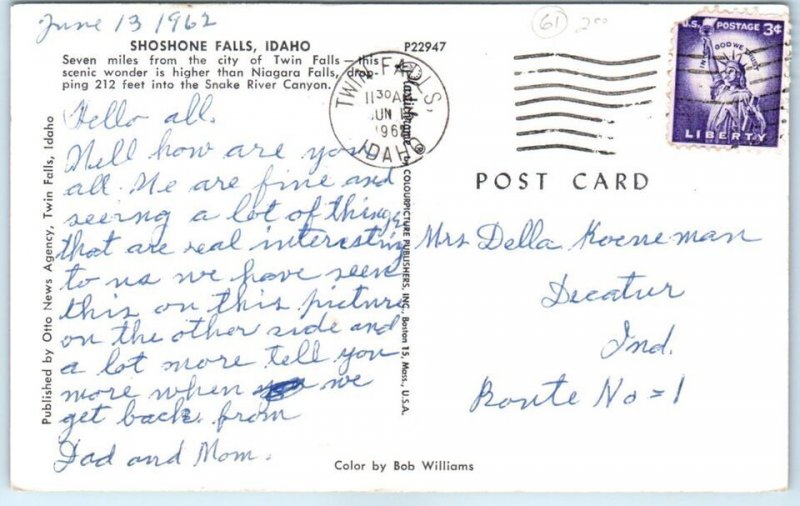 June 13 1962
61 2.00
SHOSHONE FALLS, IDAHO
P22947
Seven miles from the city of Twin Falls—this
scenic wonder is higher than Niagara Falls, drop-
ping 212 feet into the Snake River Canyon.
TWIN FALLS,
11 30 AM
JUN
1962
IDAHO
U.S. POSTAGE 3¢
IN GOD WE TRUST
LIBERTY
POST CARD
Hello all.
Well how are you
all. We are fine and
seeing a lot of things
that are real interesting
to us we have seen
this on this picture
on the other side and
a lot more tell you
more when we
get back. from
Dad and Mom.
Mrs Della Koeneman
Decatur
Ind.
Route No = 1
Published by Otto News Agency, Twin Falls, Idaho
Plastichrome ® by COLOURPICTURE PUBLISHERS, INC., Boston 15, Mass., U.S.A.
Color by Bob Williams